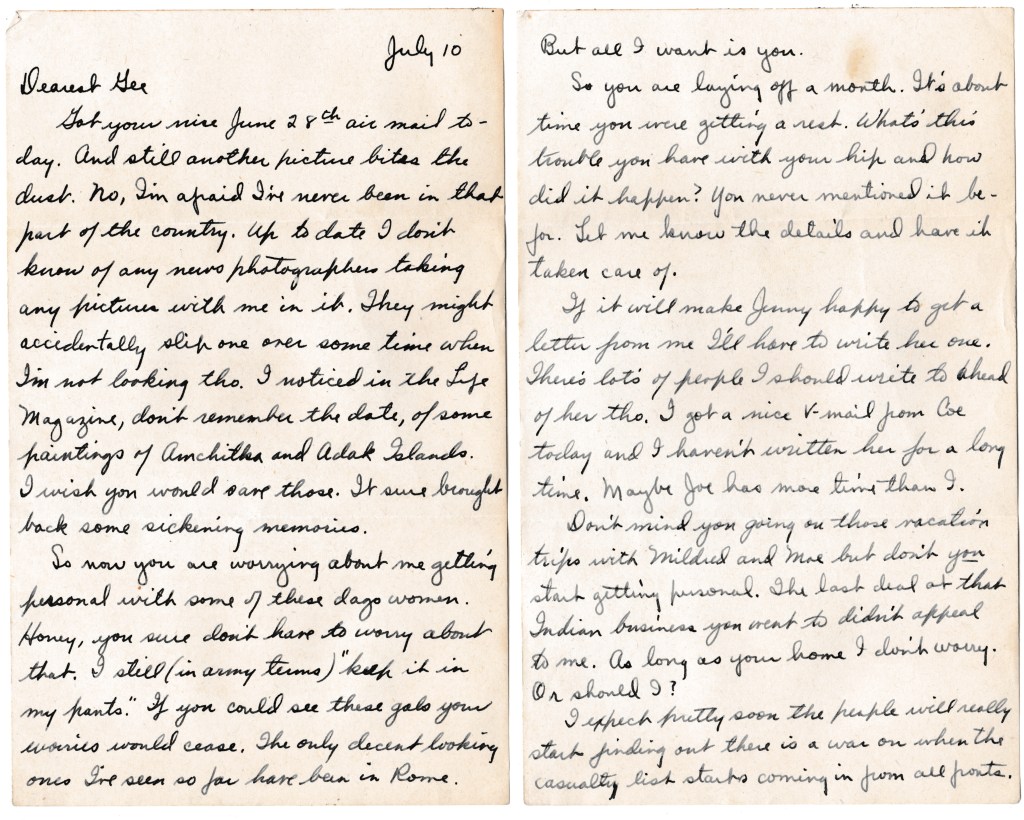 July 10
Dearest Gee
Got your nise June 28th air mail to-
day. And still another picture bites the
dust. No, I'm afraid I've never been in that
part of the country. Up to date I don't
know of any news photographers taking
any pictures with me in it. They might
accidentally slip one over some time when
I'm not looking tho. I noticed in the Life
Magazine, don't remember the date, of some
paintings of Amchitka and Adak Islands.
I wish you would save those. It sure brought
back some sickening memories.
So now you are worrying about me getting
personal with some of these dago women.
Honey, you sure don't have to worry about
that. I still (in army terms) "keep it in
my pants." If you could see these gals your
worries would cease. The only decent looking
ones I've seen so far have been in Rome.
But all I want is you.
So you are laying off a month. It's about
time you were getting a rest. What's this
trouble you have with your hip and how
did it happen? You never mentioned it be-
for. Let me know the details and have it
taken care of.
If it will make Jenny happy to get a
letter from me I'll have to write her one.
There's lot's of people I should write to ahead
of her tho. I got a nice V-mail from Coe
today and I haven't written her for a long
time. Maybe Joe has more time than I.
Don't mind you going on those vacation
trips with Mildred and Moe but don't you
start getting personal. The last deal at that
Indian business you went to didn't appeal
to me. As long as your home I don't worry.
Or should I?
I expect pretty soon the people will really
start finding out there is a war on when the
casualty list starts coming in from all fronts.